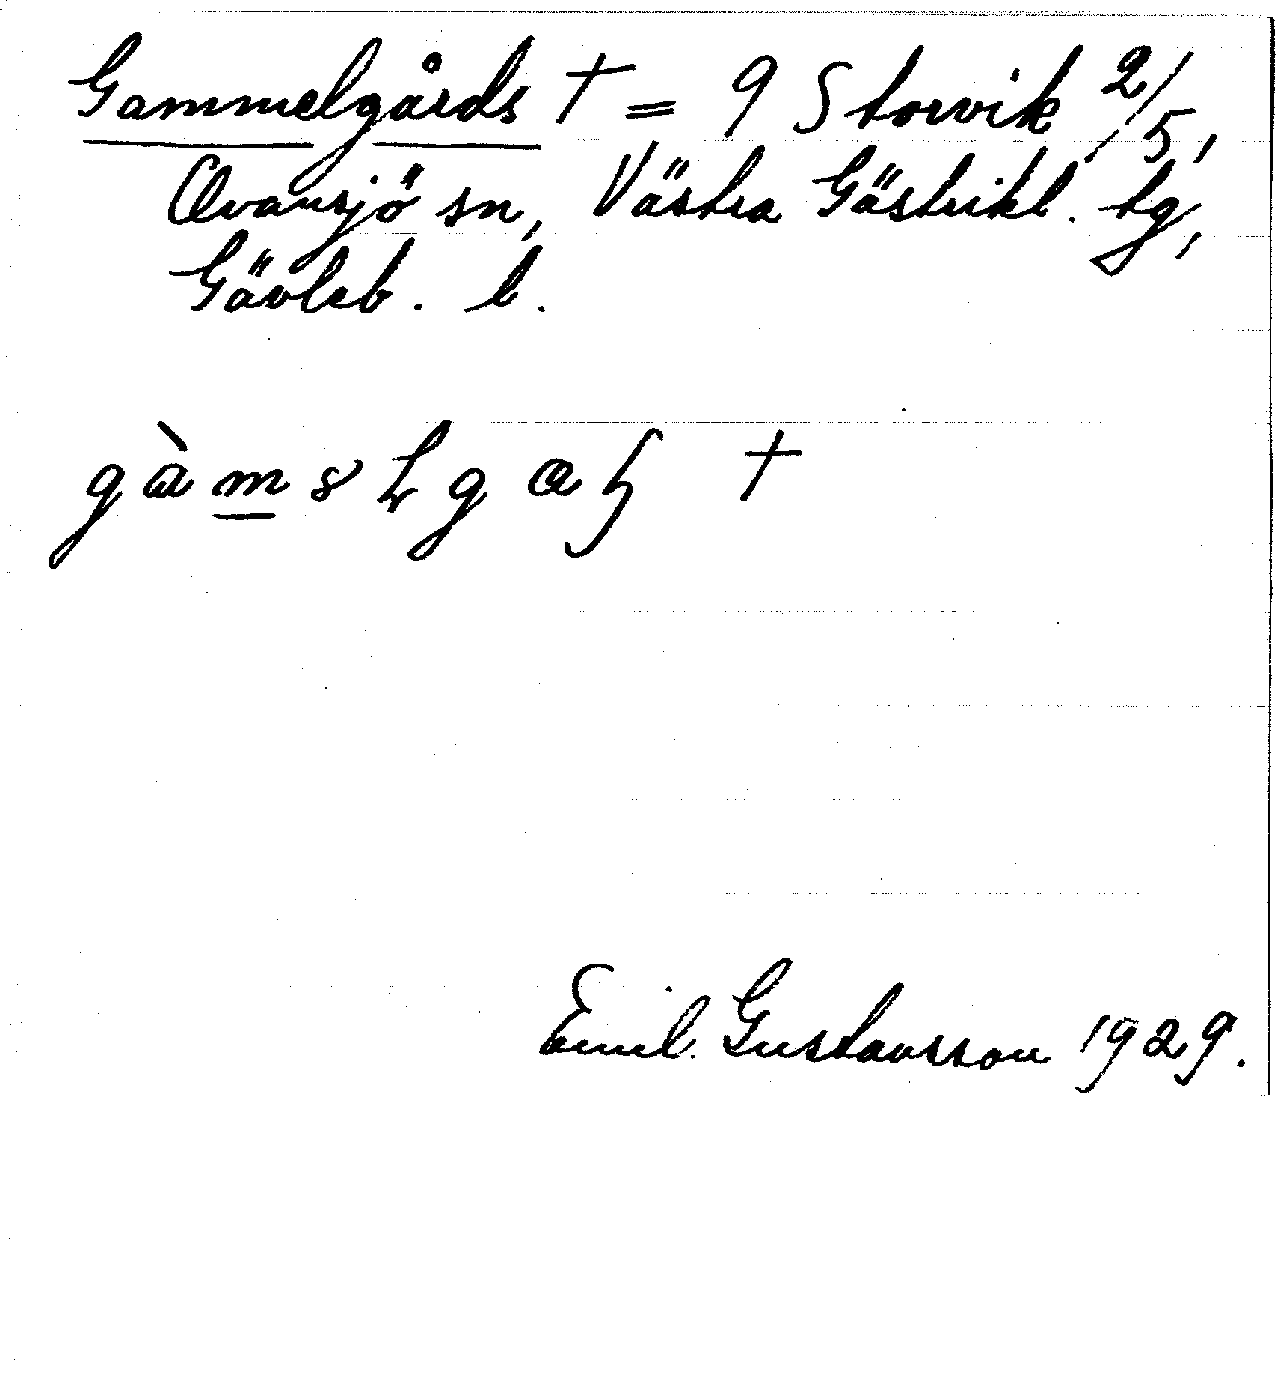 Gammelgårds † = 9 Storvik 2/5,
Ovansjö sn, Västra Gästrikl. tg,
Gävleb. l.
†
Emil Gustavsson 1929.